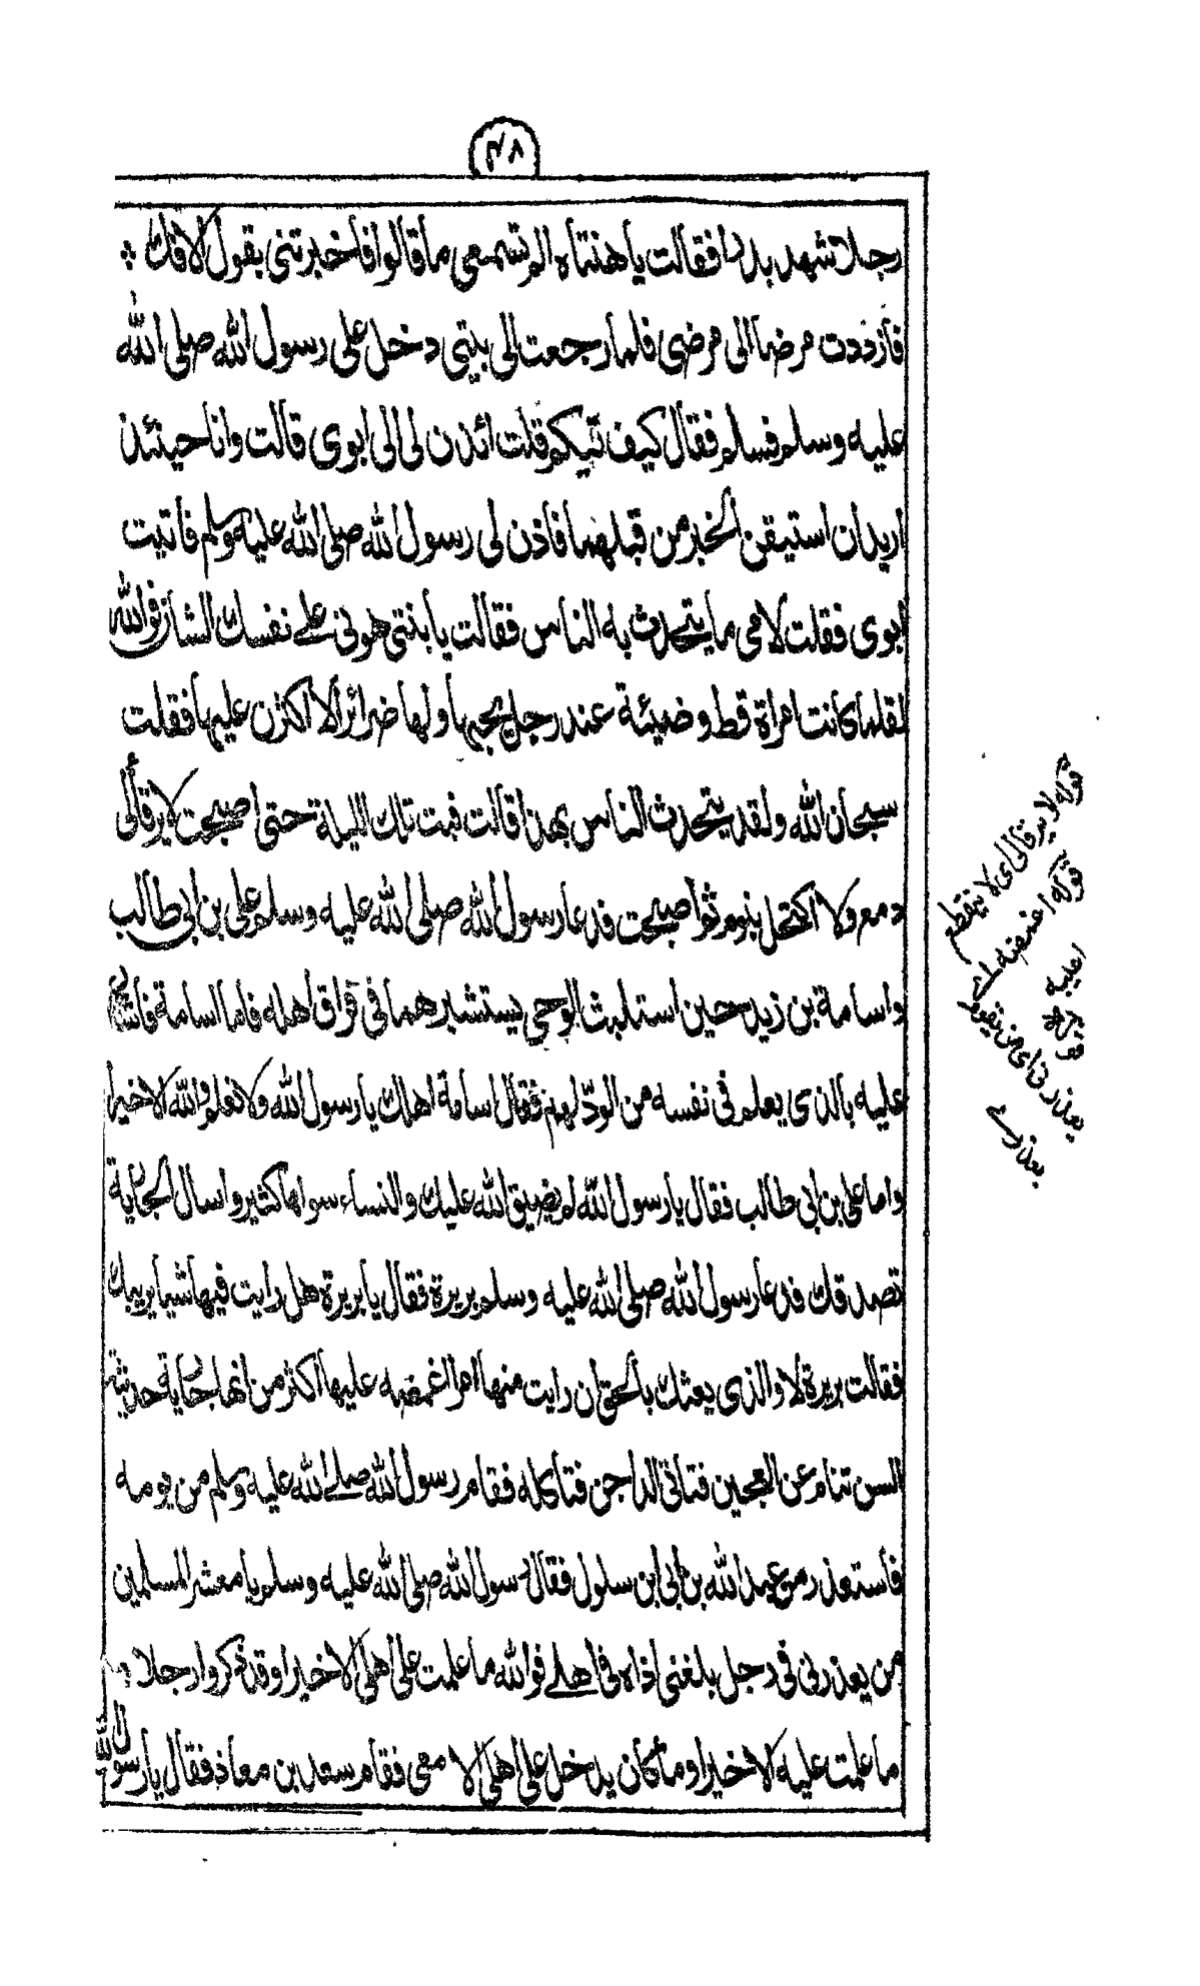 ٣٨
رجلا شهد بدرا فقالت يا هنتاه الم تسمعي ما قالوا فاخبرتني بقول الافك
فازددت مرضا الى مرضي فلما رجعت الى بيتي دخل علي رسول الله صلى الله
عليه وسلم فسلم فقال كيف تيكم قلت ائذن لي الى ابوي قالت وانا حينئذ
اريد ان استيقن الخبر من قبلهما فاذن لي رسول الله صلى الله عليه وسلم فاتيت
ابوي فقلت لامي ما يتحدث به الناس فقالت يا بنتي هوني على نفسك الشان فوالله
لقلما كانت امراة قط وضيئة عند رجل يحبها ولها ضرائر الا اكثرن عليها فقلت
سبحان الله ولقد يتحدث الناس بهذا قالت فبت تلك الليلة حتى اصبحت لا يرقألى
دمع ولا اكتحل بنوم ثم اصبحت فدعا رسول الله صلى الله عليه وسلم علي بن ابي طالب
واسامة بن زيد حين استلبث الوحي يستشيرهما في فراق اهله فاما اسامة فاشار
عليه بالذي يعلم في نفسه من الودّ لهم فقال اسامة اهلك يا رسول الله ولا نعلم والله الا خيرا
واما علي بن ابي طالب فقال يا رسول الله لم يضيق الله عليك والنساء سواها كثير واسال الجارية
تصدقك فدعا رسول الله صلى الله عليه وسلم بريرة فقال يا بريرة هل رايت فيها شيا يريبك
فقالت بريرة لا والذي بعثك بالحق ان رايت منها امرا اغمصه عليها اكثر من انها جارية حديثة
السن تنام عن العجين فتاتي الداجن فتاكله فقام رسول الله صلى الله عليه وسلم من يومه
فاستعذر من عبد الله بن ابي ابن سلول فقال رسول الله صلى الله عليه وسلم يا معشر المسلمين
من يعذرني في رجل بلغني اذاه في اهلي فوالله ما علمت على اهلي الا خيرا وقد ذكروا رجلا
ما علمت عليه الا خيرا وما كان يدخل على اهلي الا معي فقام سعد بن معاذ فقال يا رسول الله
قوله لا يرقالى اى لا ينقطع
قوله اغمصه اے
اعيبه
قوله
يعذرنى اى من يقوم
بعذرے